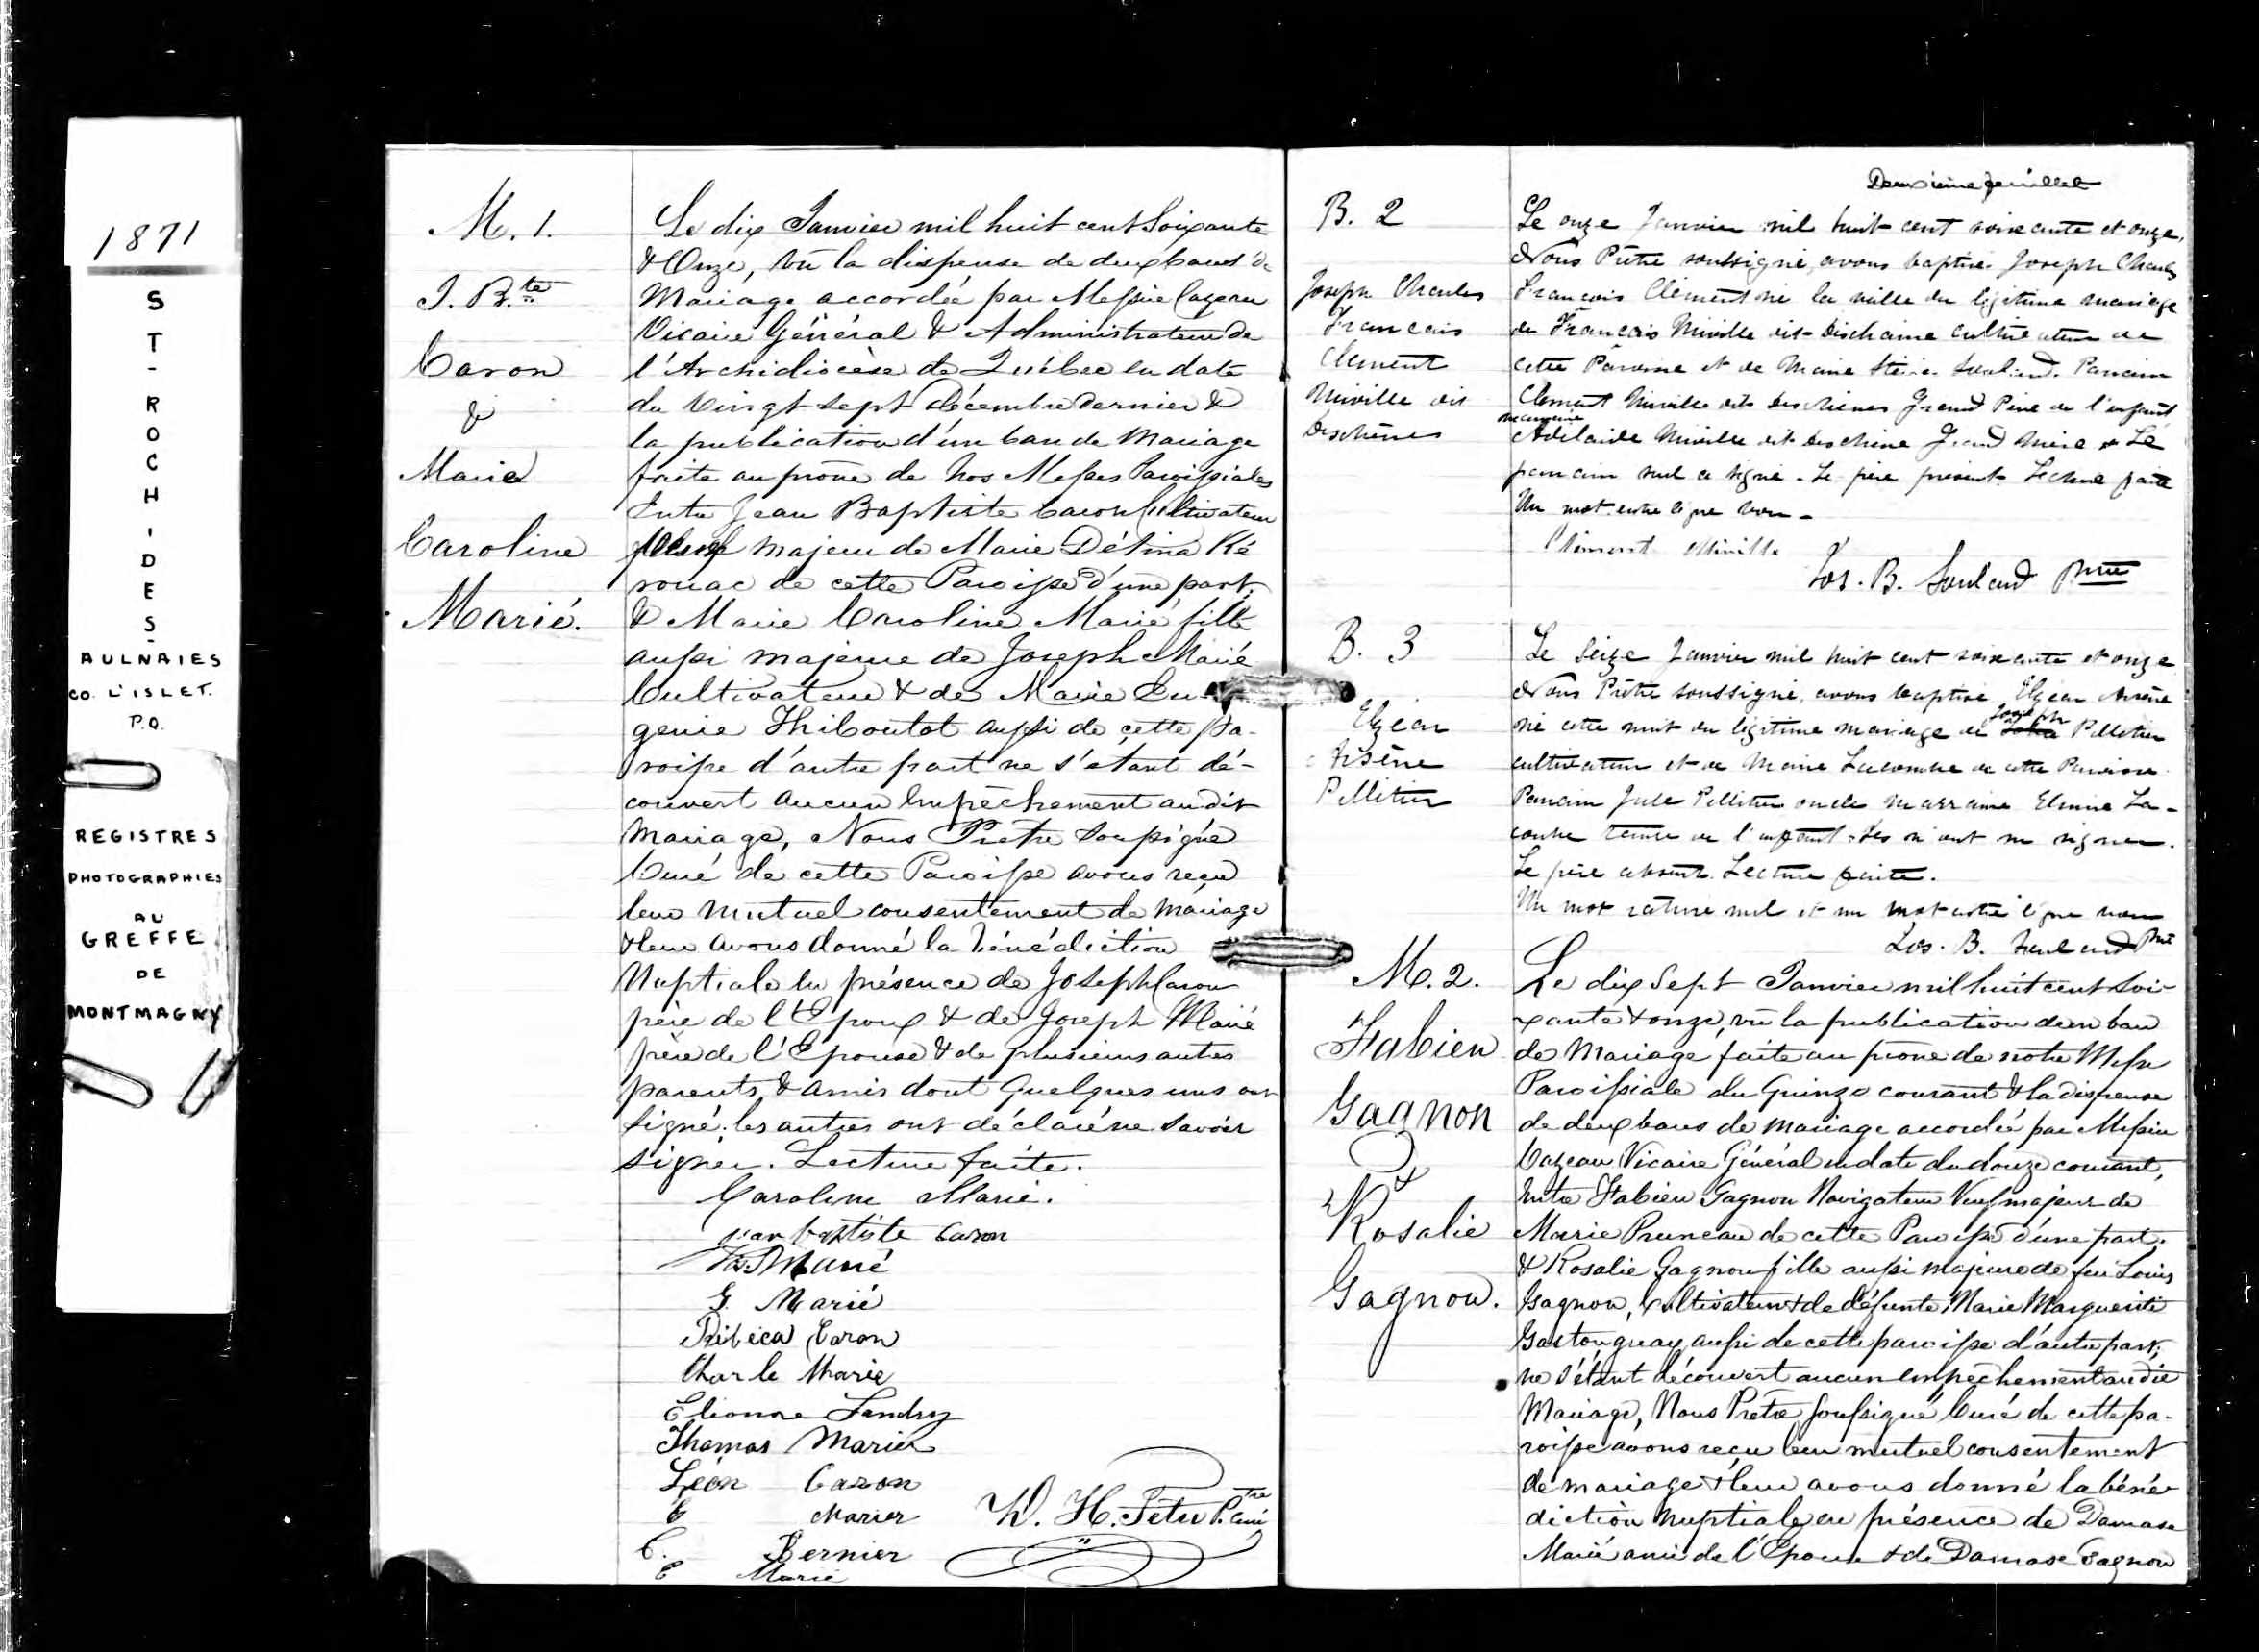 1871
ST-ROCH-DES-
AULNAIES
CO. L'ISLET.
P.Q.
REGISTRES
PHOTOGRAPHIES
AU
GREFFE
DE
MONTMAGNY
M. 1.
J. B.te
Caron
&
Marie
Caroline
Marié.
Le dix Janvier mil huit cent Soixante
& Onze, vû la dispense de deux bans de
Mariage accordée par Messire Cazeau
Vicaire Général & Administrateur de
l'Archidiocèse de Québec en date
du Vingt sept Décembre dernier &
la publication d'un ban de Mariage
faite au prône de nos Messes Paroissiales
Entre Jean Baptiste Caron Cultivateur
Veuf majeur de Marie Délina Ké
rouac de cette Paroisse d'une part,
& Marie Caroline Marié fille
aussi majeure de Joseph Marié
Cultivateur & de Marie Eu-
genie Thiboutot aussi de cette Pa-
roisse d'autre part ne s'étant dé-
couvert aucun Empêchement au dit
Mariage, Nous Prêtre Soussigné
Curé de cette Paroisse avons reçu
leur mutuel consentement de Mariage
& leur avons donné la bénédiction
Nuptiale en présence de Joseph Caron
père de l'Epoux & de Joseph Marié
père de l'Epouse & de plusieurs autres
parents & amis dont quelques uns ont
signé; les autres ont déclaré ne savoir
signer. Lecture faite.
Caroline Marié.
jean baptiste Caron
Marié
G. Marié
Caron
Charle Marie
Landry
Thomas Marier
Léon Caron
E Marier
D. H. Têtu Ptre Curé
C. Bernier
E Marié
Deuxième feuillet
B. 2
Joseph Charles
Francois
Clement
Miville dit
Deschênes
Le onze Janvier mil huit cent soixante et onze,
Nous Prêtre soussigné, avons baptisé Joseph Charles
François Clément né la veille du légitime mariage
de François Miville dit Deschaine cultivateur de
cette Paroisse et de Marie Soulard. Parrain
Clément Miville dit Deschenes Grand Père de l'enfant
marraine
Adélaïde Miville dit Deschene Grand Mère Le
parrain seul a signé. Le père présent. Lecture faite
Un mot entre ligne bon -
Clément Miville
Jos. B. Soulard Ptre
B. 3
Elzéar
Arsène
Pelletier
Le Seize Janvier mil huit cent soixante et onze
Nous Prêtre soussigné, avons baptisé Elzéar Arsène
Joseph
né cette nuit du légitime mariage de Pelletier
cultivateur et de Marie Lacombe de cette Paroisse.
Parrain Jule Pelletier oncle marraine La-
combe tante de l'enfant. Les n'ont su signer.
Le père absent. Lecture faite.
Un mot raturé nul et un mot entre ligne bon
Jos. B. Soulard Ptre
M. 2.
Fabien
Gagnon
&
Rosalie
Gagnon.
Le dix Sept Janvier mil huit cent Soi-
xante & onze, vû la publication d'un ban
de Mariage faite au prone de notre Messe
Paroissiale du Quinze courant & la dispense
de deux bans de mariage accordée par Messire
Cazeau Vicaire Général en date du douze courant,
Entre Fabien Gagnon Navigateur Veuf majeur de
Marie Pruneau de cette Paroisse d'une part.
& Rosalie Gagnon fille aussi majeure de feu Louis
Gagnon, Cultivateur & de défunte Marie Marguerite
Gastonguay aussi de cette paroisse d'autre part;
ne s'étant découvert aucun empêchement au dit
Mariage, Nous Prêtre Soussigné Curé de cette pa-
roisse avons reçu leur mutuel consentement
de mariage & leur avons donné la béné-
diction Nuptiale en présence de Damase
Marié ami de l'Epoux & de Damase Gagnon